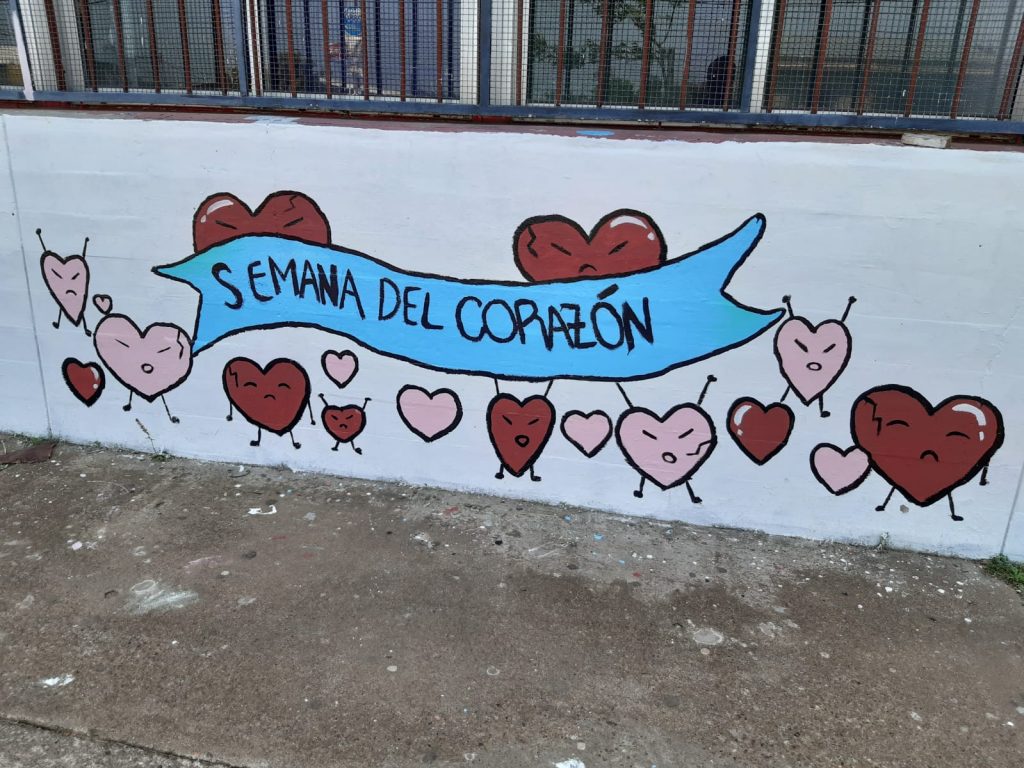 SEMANA DEL CORAZÓN